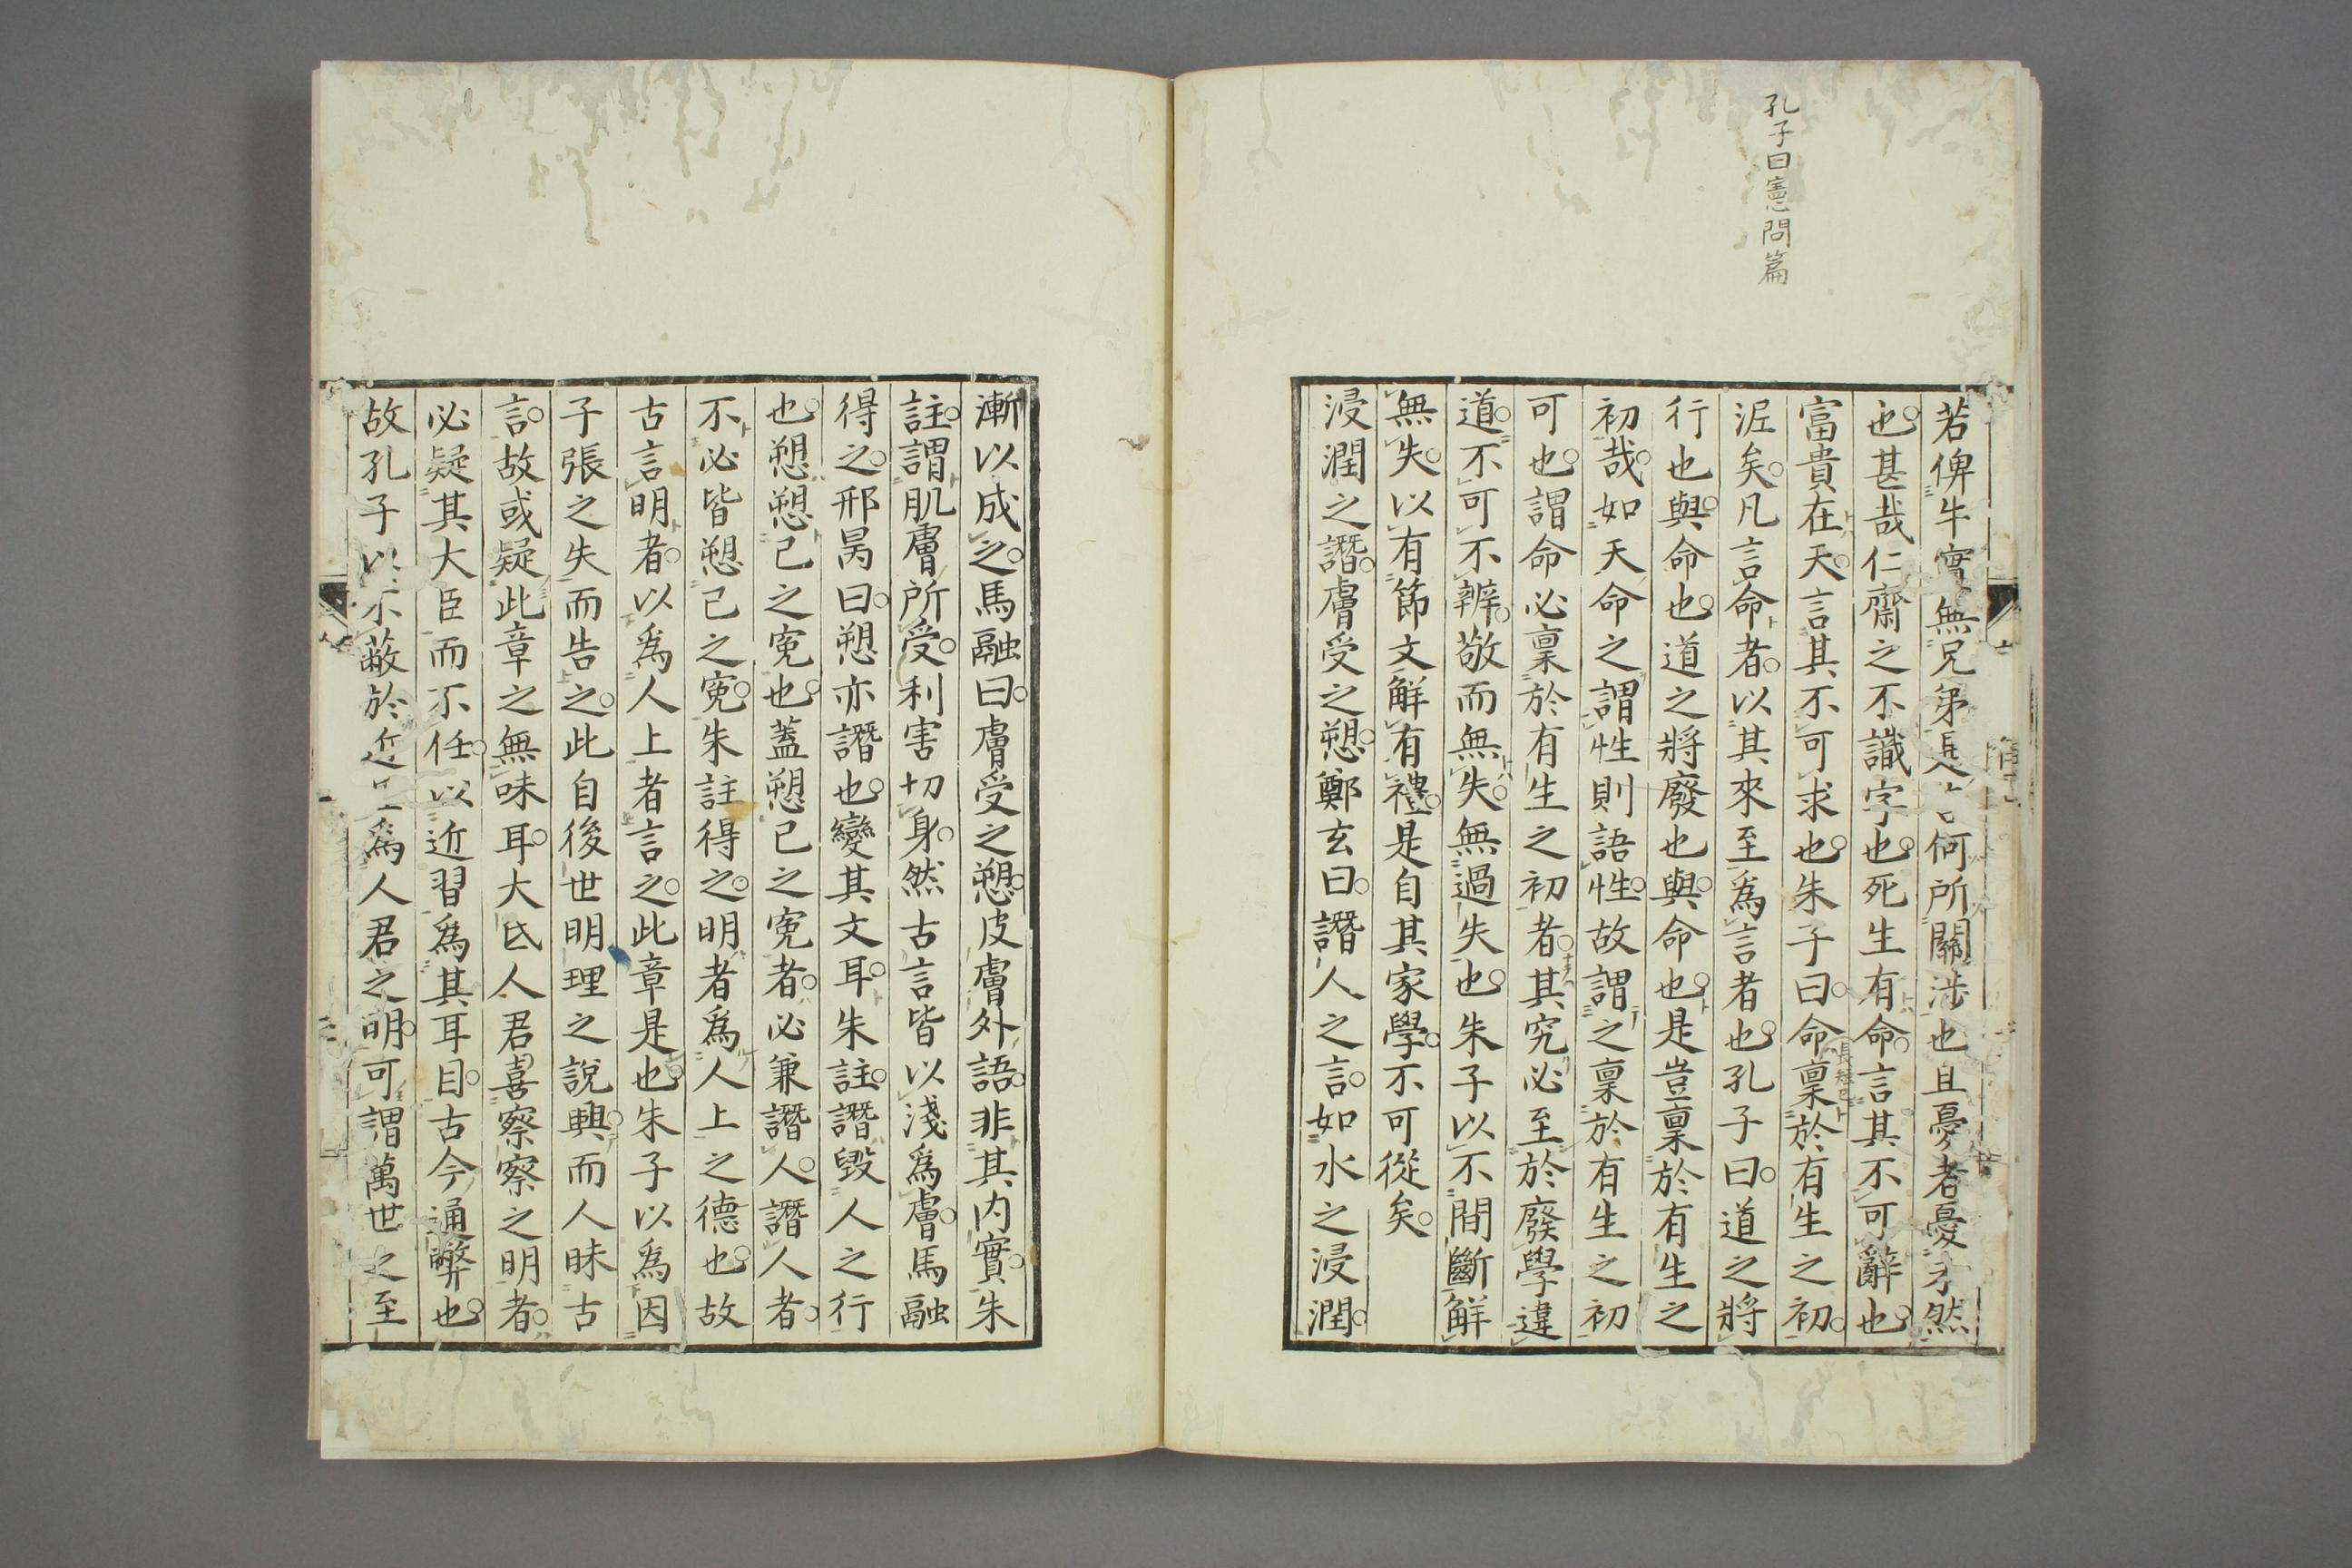 孔子曰憲問篇
若俾牛實無兄弟何所關涉也且憂者憂然
也甚哉仁齋之不識字也死生有命言其不可辭也
富貴在天言其不可求也朱子曰命稟於有生之初
泥矣凡言命者以其來至爲言者也孔子曰道之將
行也與命也道之將廢也與命也是豈稟於有生之
初哉如天命之謂性則語性故謂之稟於有生之初
可也謂命必稟於有生之初者其究必至於廢學違
道不可不辨敬而無失無過失也朱子以不間斷解
無失以有節文解有禮是自其家學不可從矣
浸潤之譖膚受之愬鄭玄曰譖人之言如水之浸潤
漸以成之馬融曰膚受之愬皮膚外語非其内實朱
註謂肌膚所受利害切身然古言皆以淺爲膚馬融
得之邢昺曰愬亦譖也變其文耳朱註譖毀人之行
也愬愬己之寃也蓋愬己之寃者必兼譖人譖人者
不必皆愬己之寃朱註得之明者爲人上之德也故
古言明者以爲人上者言之此章是也朱子以爲因
子張之失而告之此自後世明理之說興而人昧古
言故或疑此章之無味耳大氐人君喜察察之明者
必疑其大臣而不任以近習爲其耳目古今通弊也
故孔子以不蔽於近爲人君之明可謂萬世之至